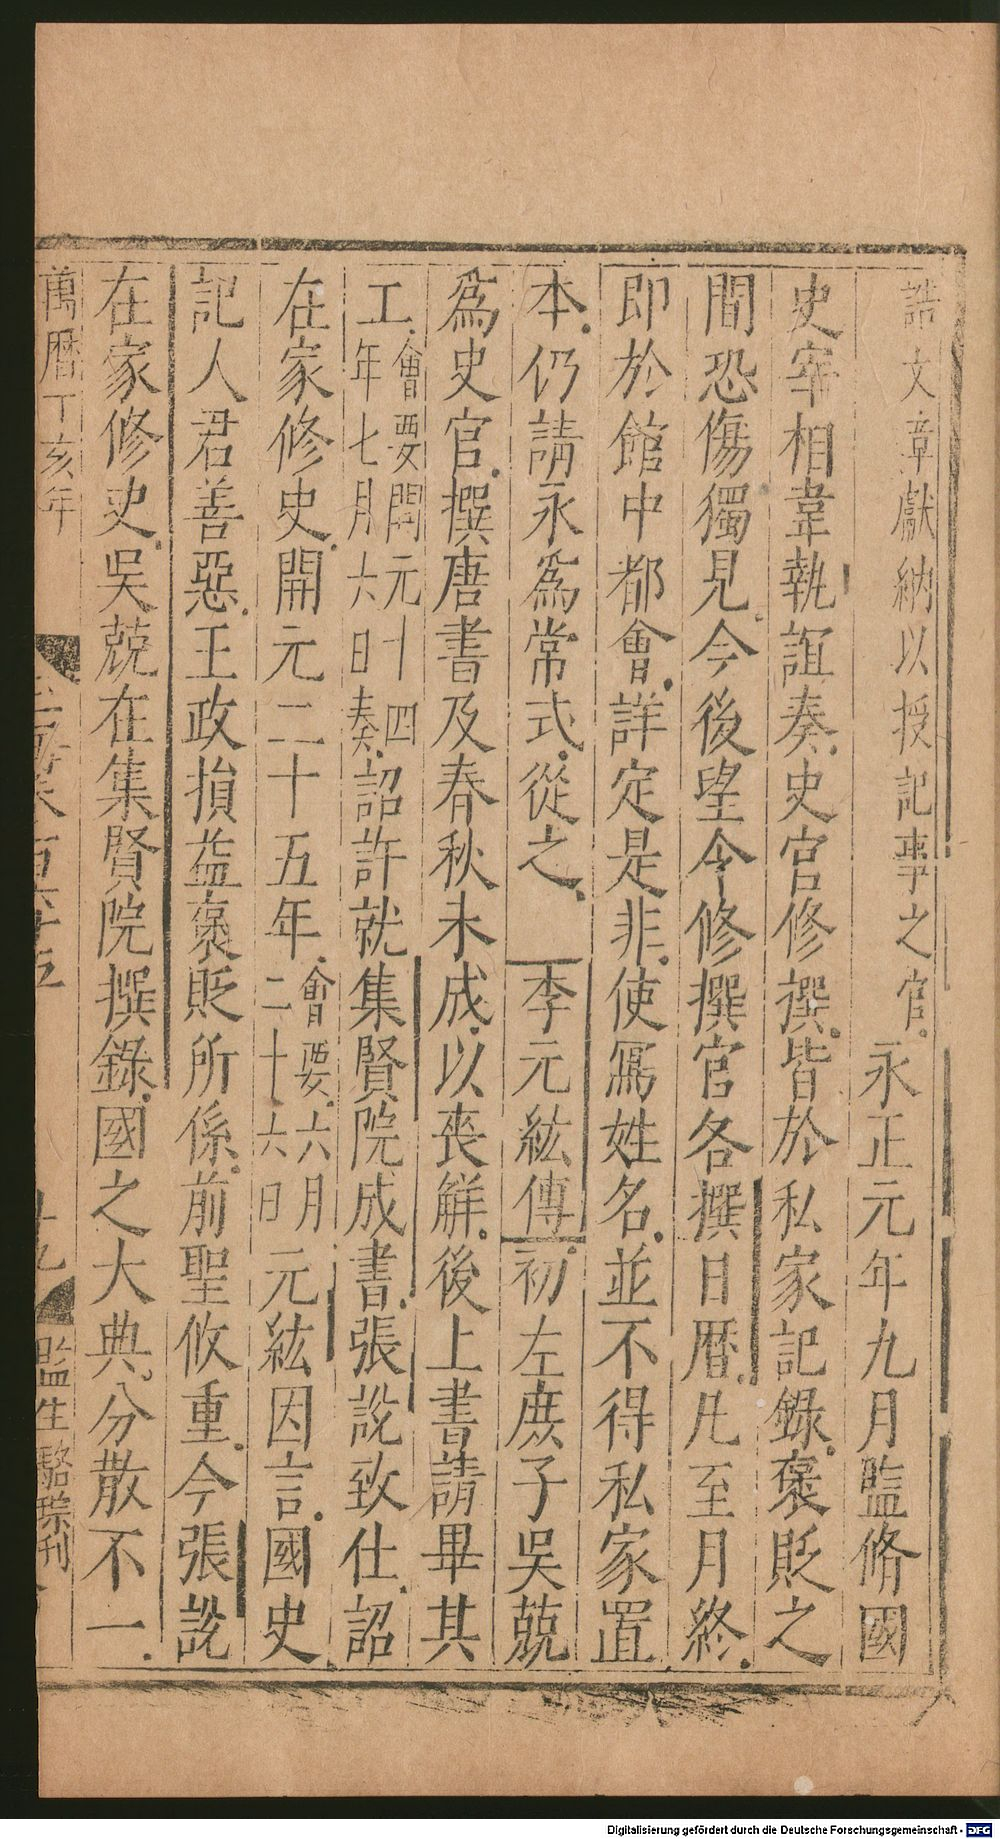 誥文章獻納以授記事之官。永正元年九月監脩國
史宰相韋執誼奏。史官修撰。皆於私家記錄。褒貶之
間恐傷獨見。今後望令修撰官各撰日曆。凡至月終。
即於館中都會。詳定是非。使寫姓名。並不得私家置
本。仍請永爲常式。從之。李元紘傳。初左庶子吳兢
爲史官。撰唐書及春秋未成。以喪解。後上書請畢其
工。會要開元十四年七月六日奏。詔許就集賢院成書。張說致仕。詔
在家修史。開元二十五年。會要。六月二十六日元紘因言。國史
記人君善惡。王政損益。褒貶所係。前聖攸重。今張說
在家修史。吳兢在集賢院撰錄。國之大典。分散不一。
萬曆丁亥年
百六十五
十九
監生駱琮刊
Digitalisierung gefördert durch die Deutsche Forschungsgemeinschaft - DFG